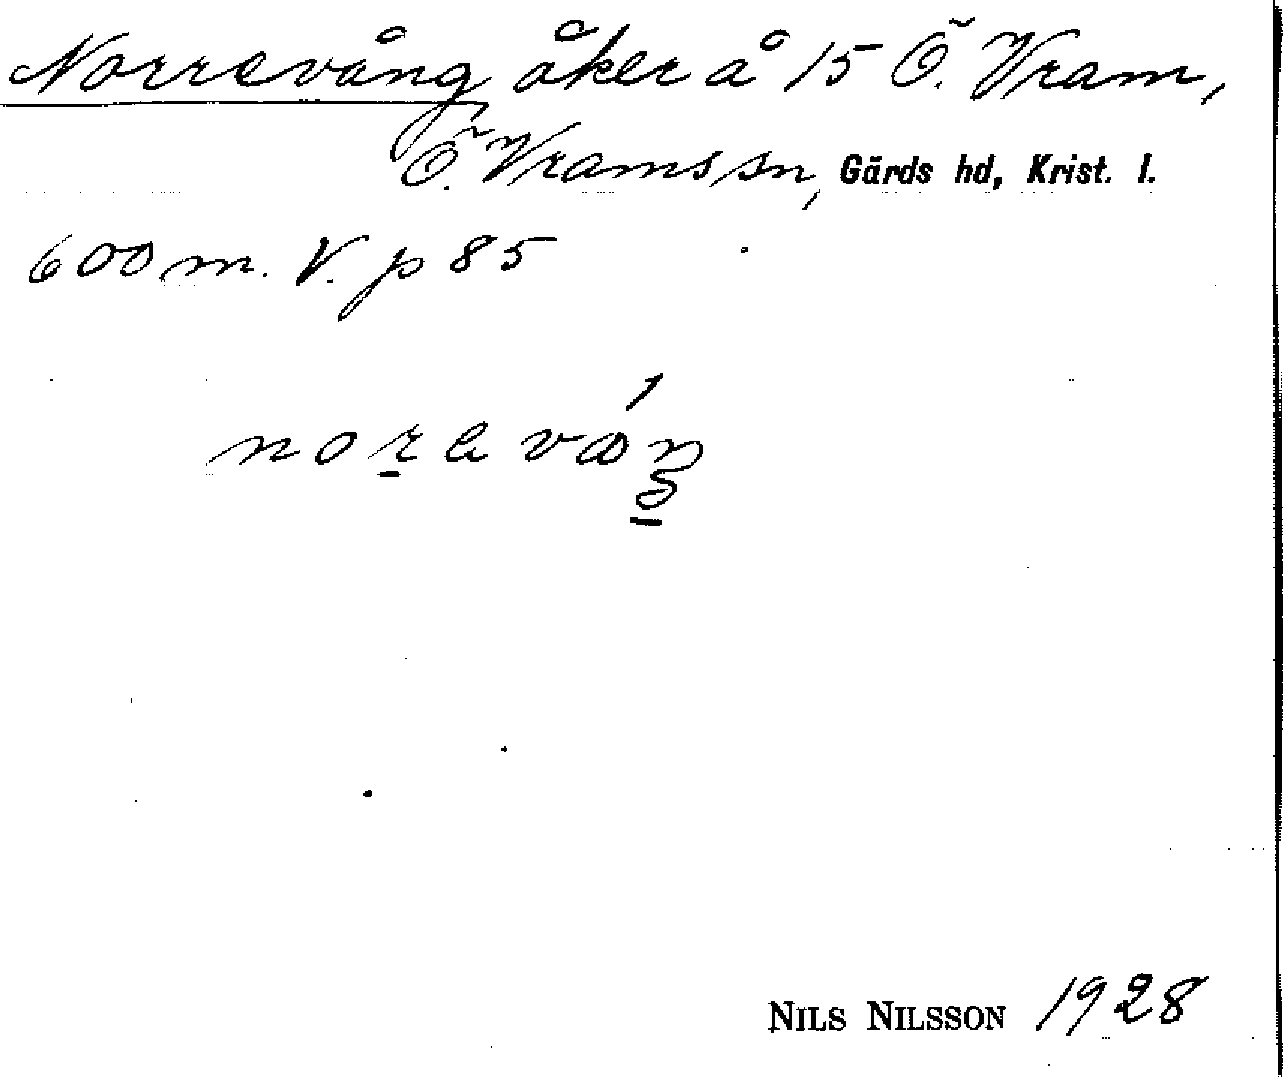 Norrevång åker å 15 Ö. Vram,
Ö. Vrams sn, Gärds hd, Krist. l.
600 m. V. p 85
norevåŋ
NILS NILSSON 1928